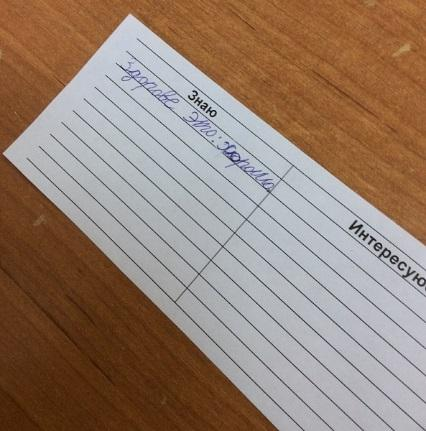 Знаю
Здоровье это: хорошо
Интересую